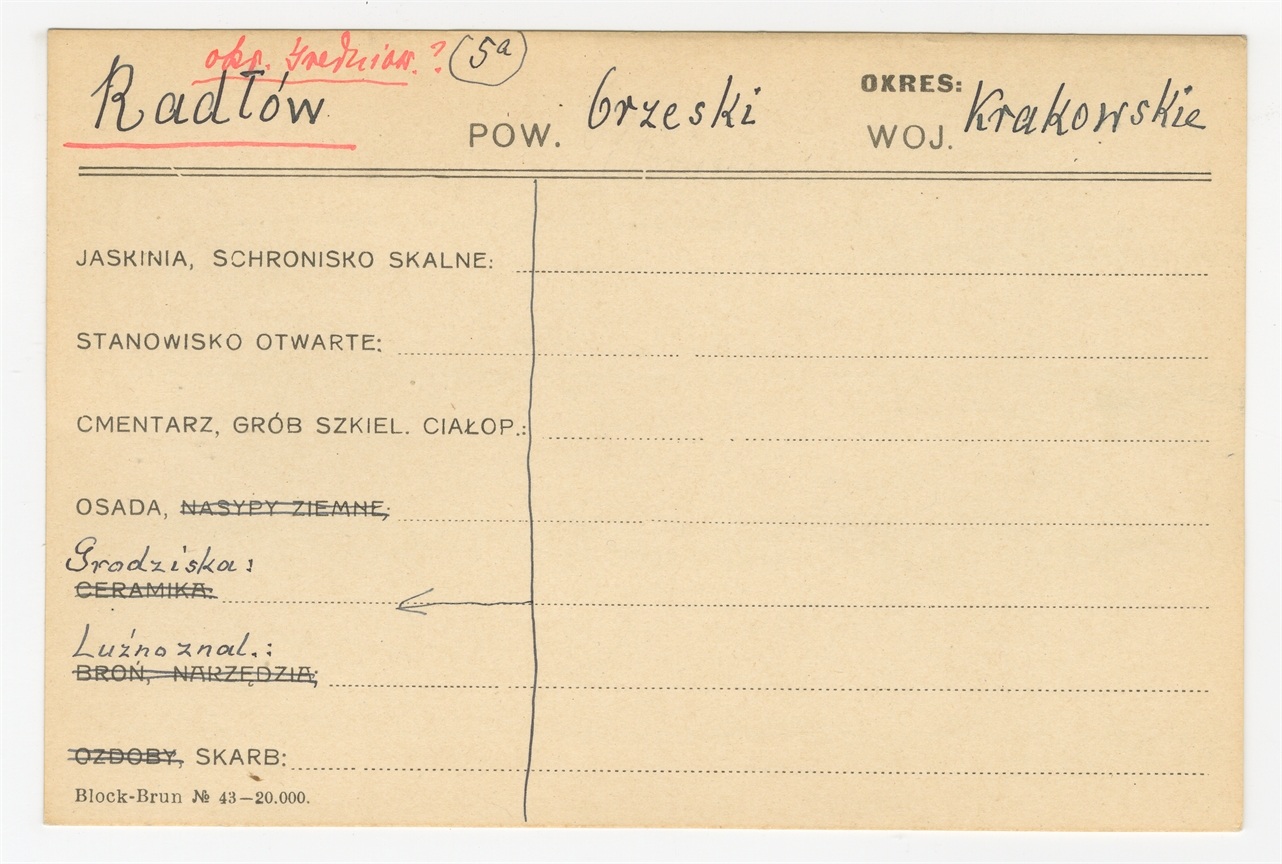 okr. średniow.? 5a
Radłów POW. brzeski OKRES:
WOJ. Krakowskie
JASKINIA, SCHRONISKO SKALNE:
STANOWISKO OTWARTE:
CMENTARZ, GRÓB SZKIEL. CIAŁOP.:
OSADA, NASYPY ZIEMNE,
Grodziska:
CERAMIKA:
Luźno znal.:
BROŃ, NARZĘDZIA;
OZDOBY, SKARB:
Block-Brun № 43—20.000.